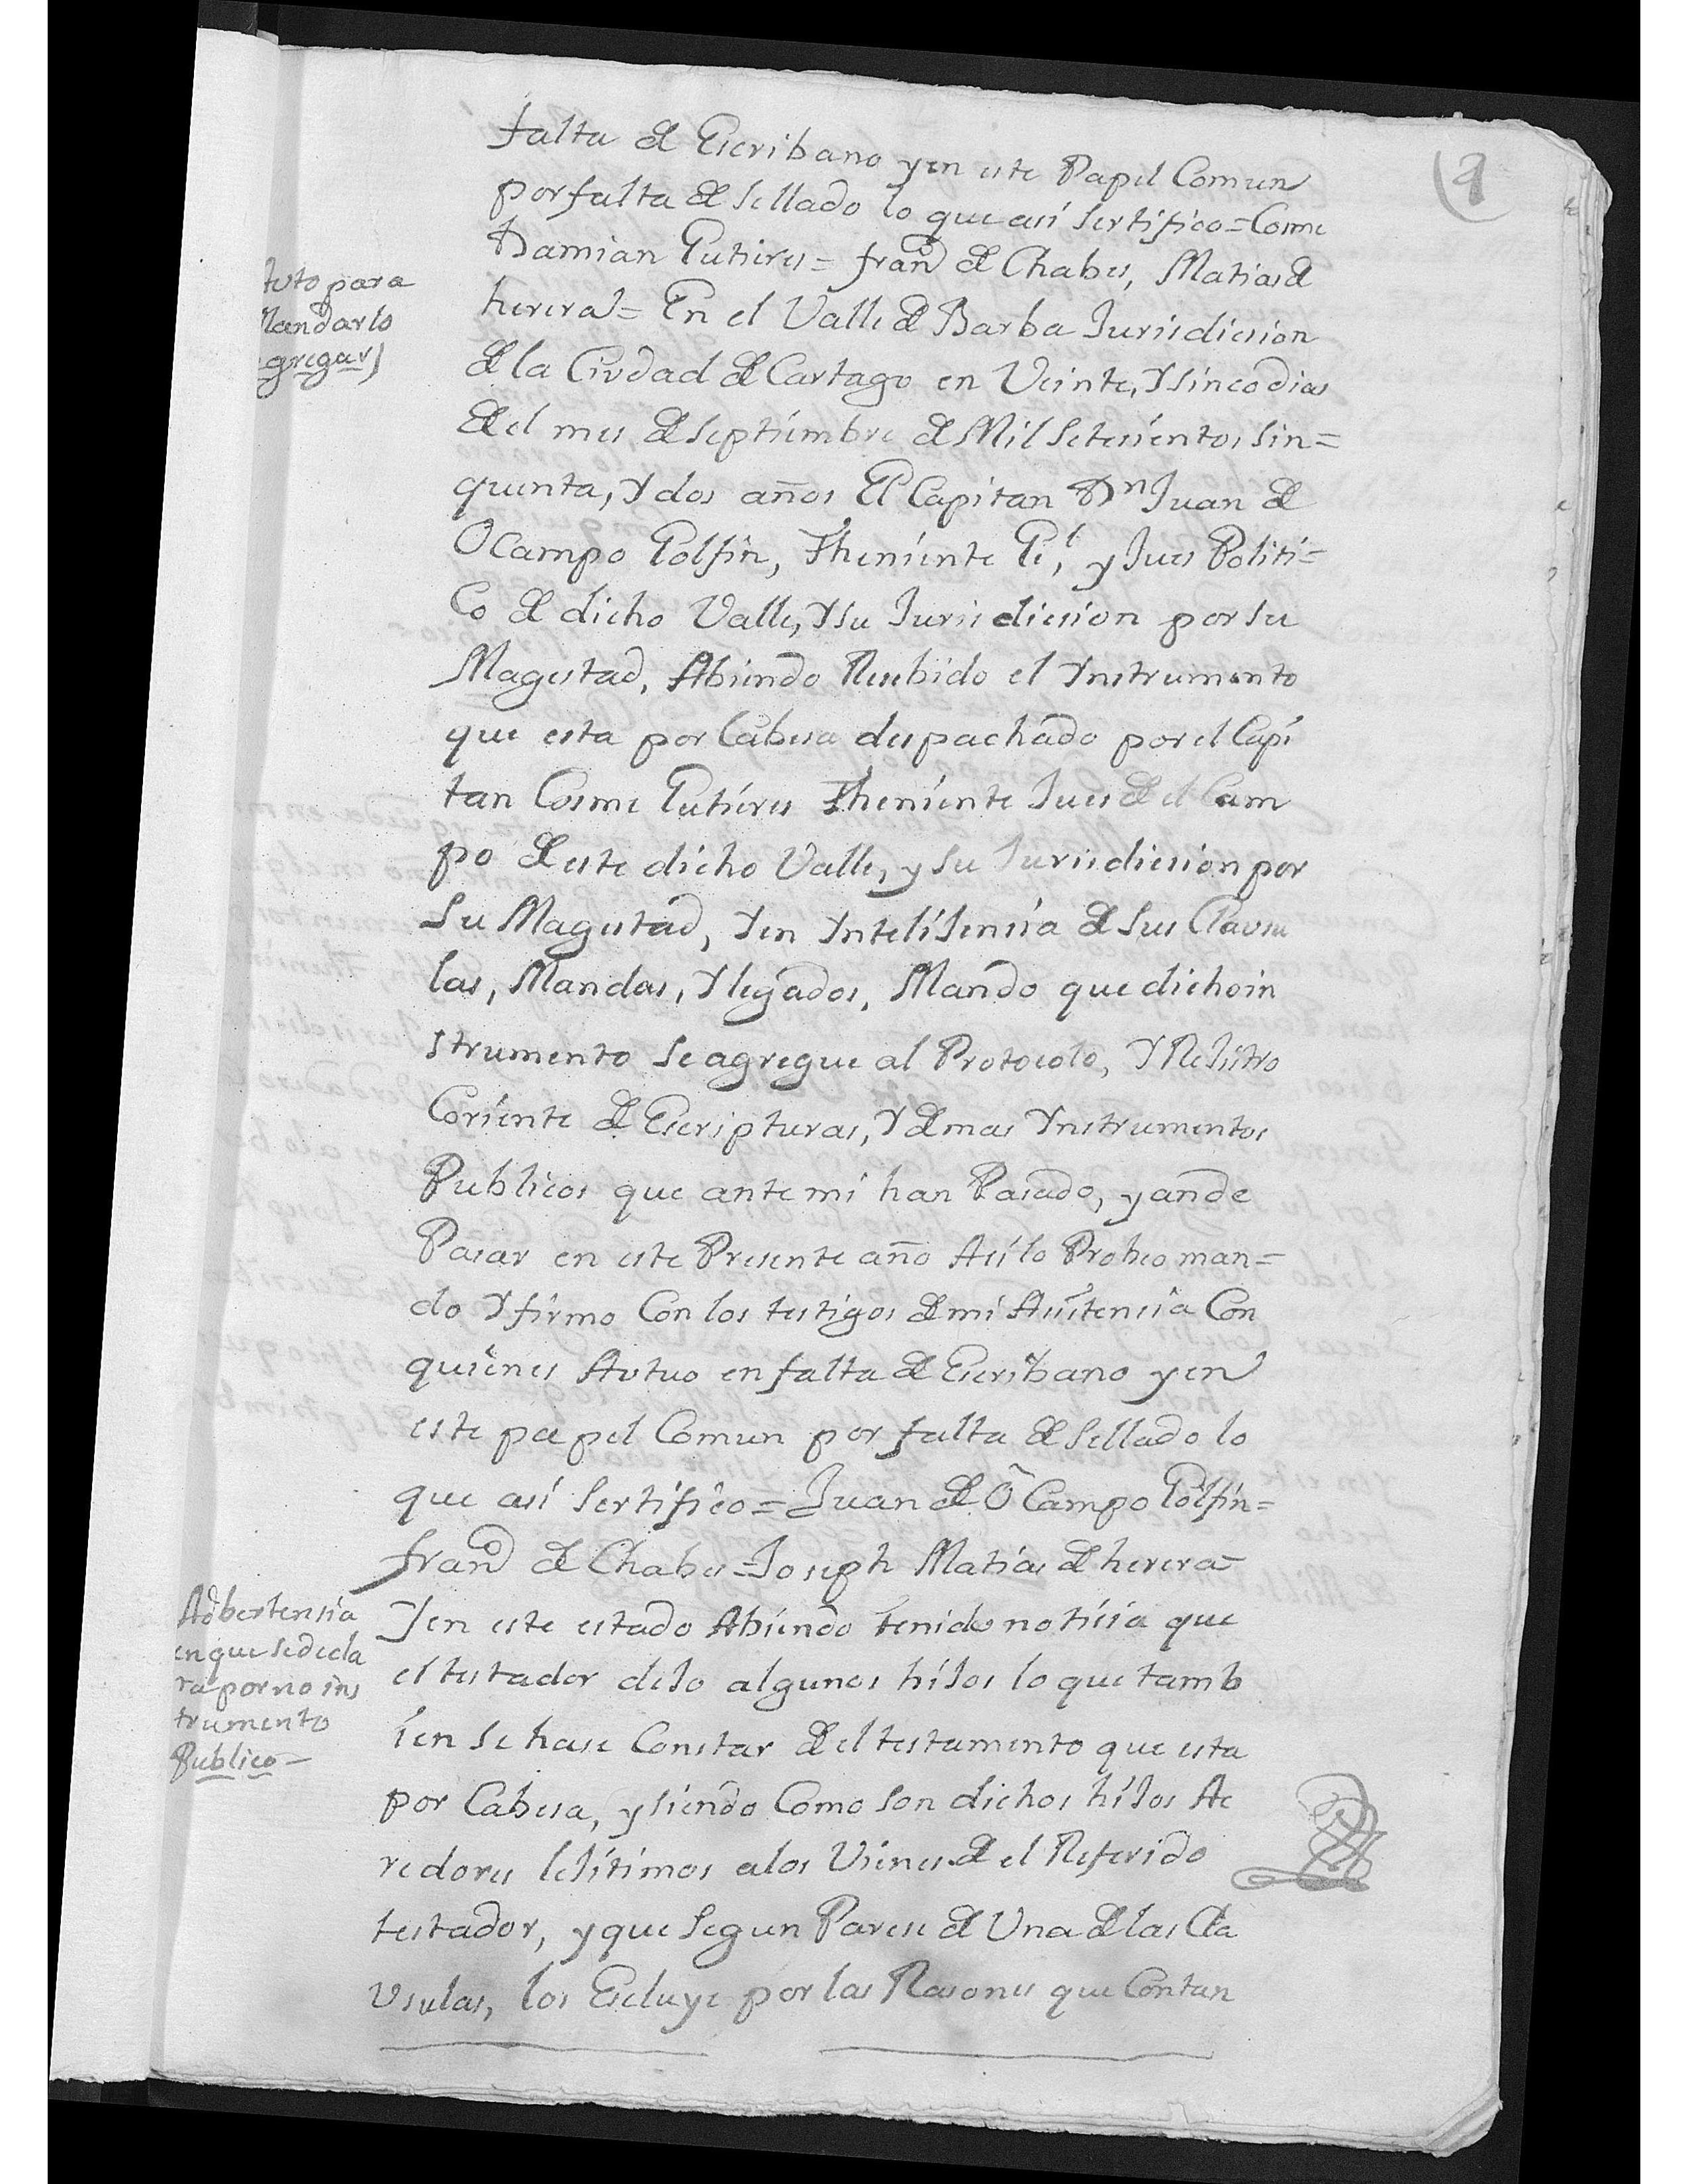 falta de Escribano y en este Papel Comun
por falta de Sellado lo que así Sertifico = Cosme
Damian Gutires = franco de Chabes, Matias de
herera = En el Valle de Barba Jurisdicsion
de la Ciudad de Cartago en Veinte, Y sinco dias
de el mes de Septiembre de Mil Setesientos sin=
quenta, Y dos años El Capitan Dn Juan de
OCampo Golfin, Theniente Gel, y Jues Politi=
Co de dicho Valle, Y su Jurisdicsion por su
Magestad, Abiendo Resebido el Ynstrumento
que esta por Cabesa despachado por el Capi
tan Cosme Gutieres Theniente Jues de el Cam
po de este dicho Valle, y su Jurisdicsion por
Su Magestad, Y en YnteliJensia de Sus Clausu
las, Mandas, Y legados, Mando que dicho in
strumento Se agregue al Protocolo, Y ReJistro
Coriente de Escripturas, Y demas Ynstrumentos
Publicos que ante mi han Pasado, y an de
Pasar en este Presente año Asi lo Probeo man=
do Y firmo Con los testigos de mi Asistensia Con
quienes Autuo en falta de Escribano y en
este papel Comun por falta de Sellado lo
que así Sertifico = Juan de OCampo Golfin =
franco de Chabes = Joseph Matias de herera =
Y en este estado Abiendo tenido notisia que
el testador deJo algunos hiJos lo que tamb
ien se hase Constar de el testamento que esta
por Cabesa, y siendo Como son dichos hiJos Ac
redores leJitimos a los Vienes de el Referido
testador, y que Segun Parese de Una de las Cla
Usulas, los Escluye por las Rasones que Contan
Auto para
Mandarlo
agregar
Adbertensia
en que se decla
ra por no ins
trumento
Publico =